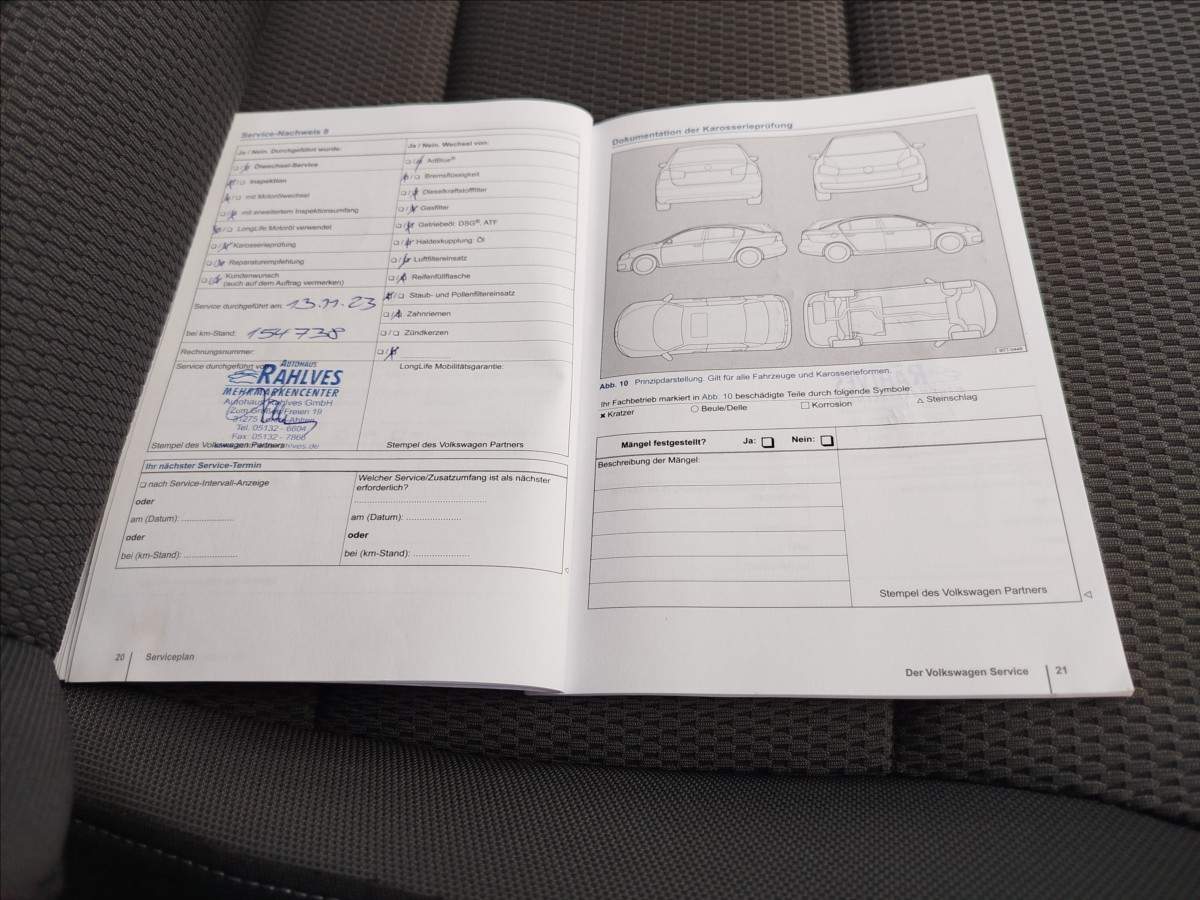 Service-Nachweis 8
Ja / Nein. Durchgeführt wurde:
Ölwechsel-Service
Inspektion
mit Motorölwechsel
mit erweitertem Inspektionsumfang
LongLife Motoröl verwendet
Karosserieprüfung
Reparaturempfehlung
Kundenwunsch
(auch auf dem Auftrag vermerken)
Service durchgeführt am: 13.11.23
bei km-Stand: 154738
Rechnungsnummer:
Service durchgeführt
AUTOHAUS
RAHLVES
MEHRMARKENCENTER
Autohaus Rahlves GmbH
Zum Großen Freien 19
31275
Tel. 05132 - 6604
Fax: 05132 - 7866
Stempel des Volkswagen Partners
Ja / Nein. Wechsel von:
AdBlue®
Bremsflüssigkeit
Dieselkraftstofffilter
Gasfilter
Getriebeöl: DSG®, ATF
Haldexkupplung: Öl
Luftfiltereinsatz
Reifenfüllflasche
Staub- und Pollenfiltereinsatz
Zahnriemen
Zündkerzen
LongLife Mobilitätsgarantie:
Stempel des Volkswagen Partners
Ihr nächster Service-Termin
nach Service-Intervall-Anzeige
oder
am (Datum): ....................
oder
bei (km-Stand): ....................
Welcher Service/Zusatzumfang ist als nächster
erforderlich?
am (Datum): ....................
oder
bei (km-Stand): ....................
20 Serviceplan
Dokumentation der Karosserieprüfung
Abb. 10 Prinzipdarstellung. Gilt für alle Fahrzeuge und Karosserieformen.
Ihr Fachbetrieb markiert in Abb. 10 beschädigte Teile durch folgende Symbole:
Kratzer Beule/Delle Korrosion Steinschlag
Mängel festgestellt? Ja: Nein:
Beschreibung der Mängel:
Stempel des Volkswagen Partners
Der Volkswagen Service 21